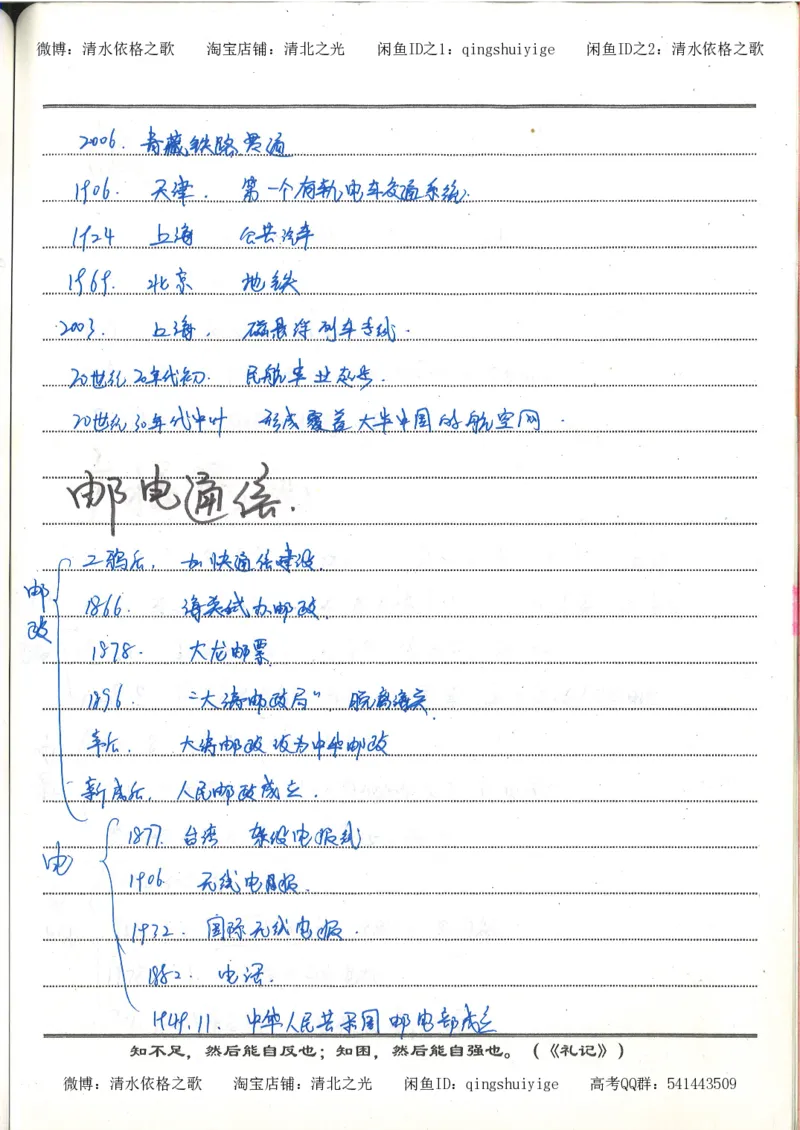 微博：清水依格之歌 淘宝店铺：清北之光 闲鱼ID之1：qingshuiyige 闲鱼ID之2：清水依格之歌
2006. 青藏铁路贯通
1906. 天津. 第一个有轨电车交通系统.
1924 上海 公共汽车
1969. 北京 地铁
2003. 上海. 磁悬浮列车专线.
20世纪20年代初. 民航事业起步.
20世纪30年代中叶 形成覆盖大半中国的航空网.
邮电通信.
邮政
二鸦后, 加快通信建设.
1866. 海关试办邮政.
1878. 大龙邮票.
1896. "大清邮政局", 脱离海关.
辛后, 大清邮政改为中华邮政
新成后, 人民邮政成立.
电
1877. 台湾 架设电报线
1906. 无线电报.
1932. 国际无线电报.
1882. 电话.
1949.11. 中华人民共和国邮电部成立
知不足，然后能自反也；知困，然后能自强也。（《礼记》）
微博：清水依格之歌 淘宝店铺：清北之光 闲鱼ID：qingshuiyige 高考QQ群：541443509